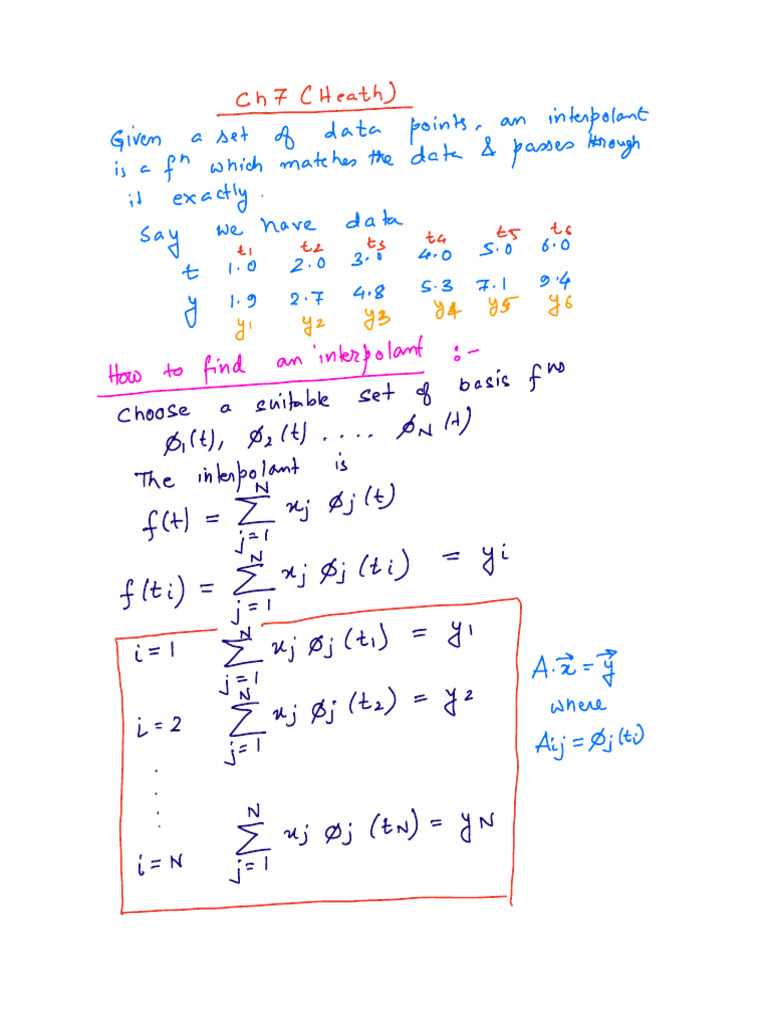 Ch 7 (Heath)
Given a set of data points, an interpolant
is a fⁿ which matches the data & passes through
it exactly.
Say we have data
t₁ t₂ t₃ t₄ t₅ t₆
t 1.0 2.0 3.0 4.0 5.0 6.0
y 1.9 2.7 4.8 5.3 7.1 9.4
y₁ y₂ y₃ y₄ y₅ y₆
How to find an interpolant :-
Choose a suitable set of basis fⁿˢ
ø₁(t), ø₂(t) .... ø_N(t)
The interpolant is
f(t) = ∑_{j=1}^{N} x_j ø_j(t)
f(t_i) = ∑_{j=1}^{N} x_j ø_j(t_i) = y_i
i=1 ∑_{j=1}^{N} x_j ø_j(t₁) = y₁
i=2 ∑_{j=1}^{N} x_j ø_j(t₂) = y₂
....
i=N ∑_{j=1}^{N} x_j ø_j(t_N) = y_N
A.x⃗ = y⃗
where
A_{ij} = ø_j(t_i)